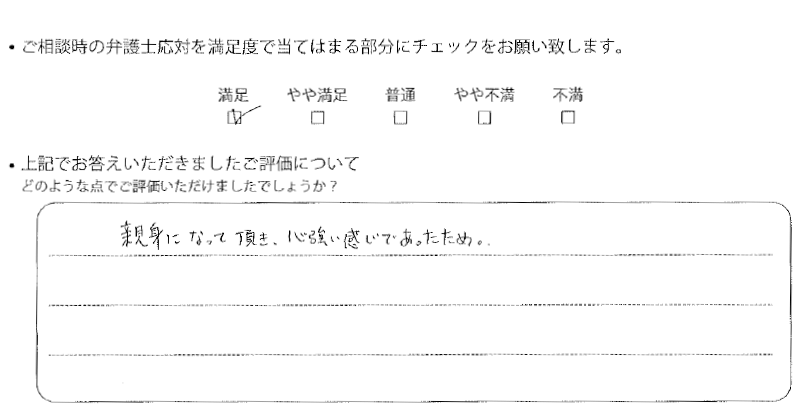 ・ご相談時の弁護士応対を満足度で当てはまる部分にチェックをお願い致します。
満足 やや満足 普通 やや不満 不満
☑ □ □ □ □
・上記でお答えいただきましたご評価について
どのような点でご評価いただけましたでしょうか？
親身になって頂き、心強い感じであったため。